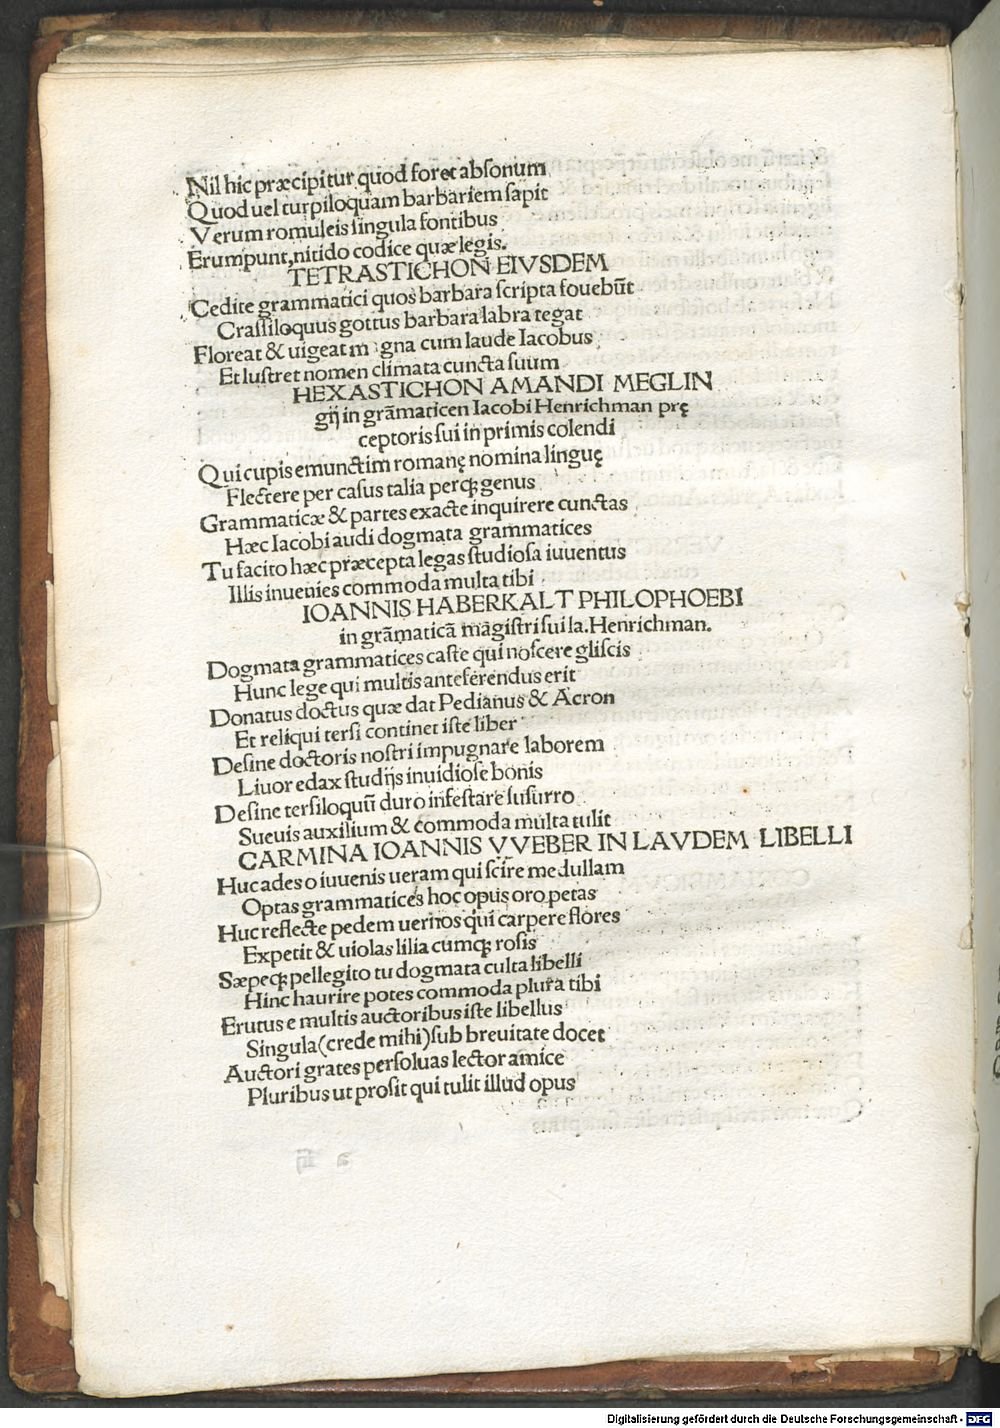 Nil hic præcipitur quod foret absonum
Quod uel turpiloquam barbariem sapit
Verum romuleis singula fontibus
Erumpunt, nitido codice quæ legis.
TETRASTICHON EIVSDEM
Cedite grammatici quos barbara scripta fouebũt
Crassiloquus gottus barbara labra tegat
Floreat & uigeat magna cum laude Iacobus
Et lustret nomen climata cuncta suum
HEXASTICHON AMANDI MEGLIN
gij in grãmaticen Iacobi Henrichman prę
ceptoris sui in primis colendi
Qui cupis emunctim romanę nomina linguę
Flectere per casus talia perqꝫ genus
Grammaticæ & partes exacte inquirere cunctas
Hæc Iacobi audi dogmata grammatices
Tu facito hæc præcepta legas studiosa iuuentus
Illis inuenies commoda multa tibi
IOANNIS HABERKALT PHILOPHOEBI
in grãmaticã magistri sui Ia. Henrichman.
Dogmata grammatices caste qui noscere gliscis
Hunc lege qui multis anteferendus erit
Donatus doctus quæ dat Pedianus & Acron
Et reliqui tersi continet iste liber
Desine doctoris nostri impugnare laborem
Liuor edax studijs inuidiose bonis
Desine tersiloquũ duro infestare susurro
Sueuis auxilium & commoda multa tulit
CARMINA IOANNIS VVEBER IN LAVDEM LIBELLI
Huc ades o iuuenis ueram qui scire medullam
Optas grammatices hoc opus oro petas
Huc reflecte pedem uernos qui carpere flores
Expetit & uiolas lilia cumqꝫ rosis
Sæpeqꝫ pellegito tu dogmata culta libelli
Hinc haurire potes commoda plura tibi
Erutus e multis auctoribus iste libellus
Singula (crede mihi) sub breuitate docet
Auctori grates persoluas lector amice
Pluribus ut prosit qui tulit illud opus
Digitalisierung gefördert durch die Deutsche Forschungsgemeinschaft - DFG